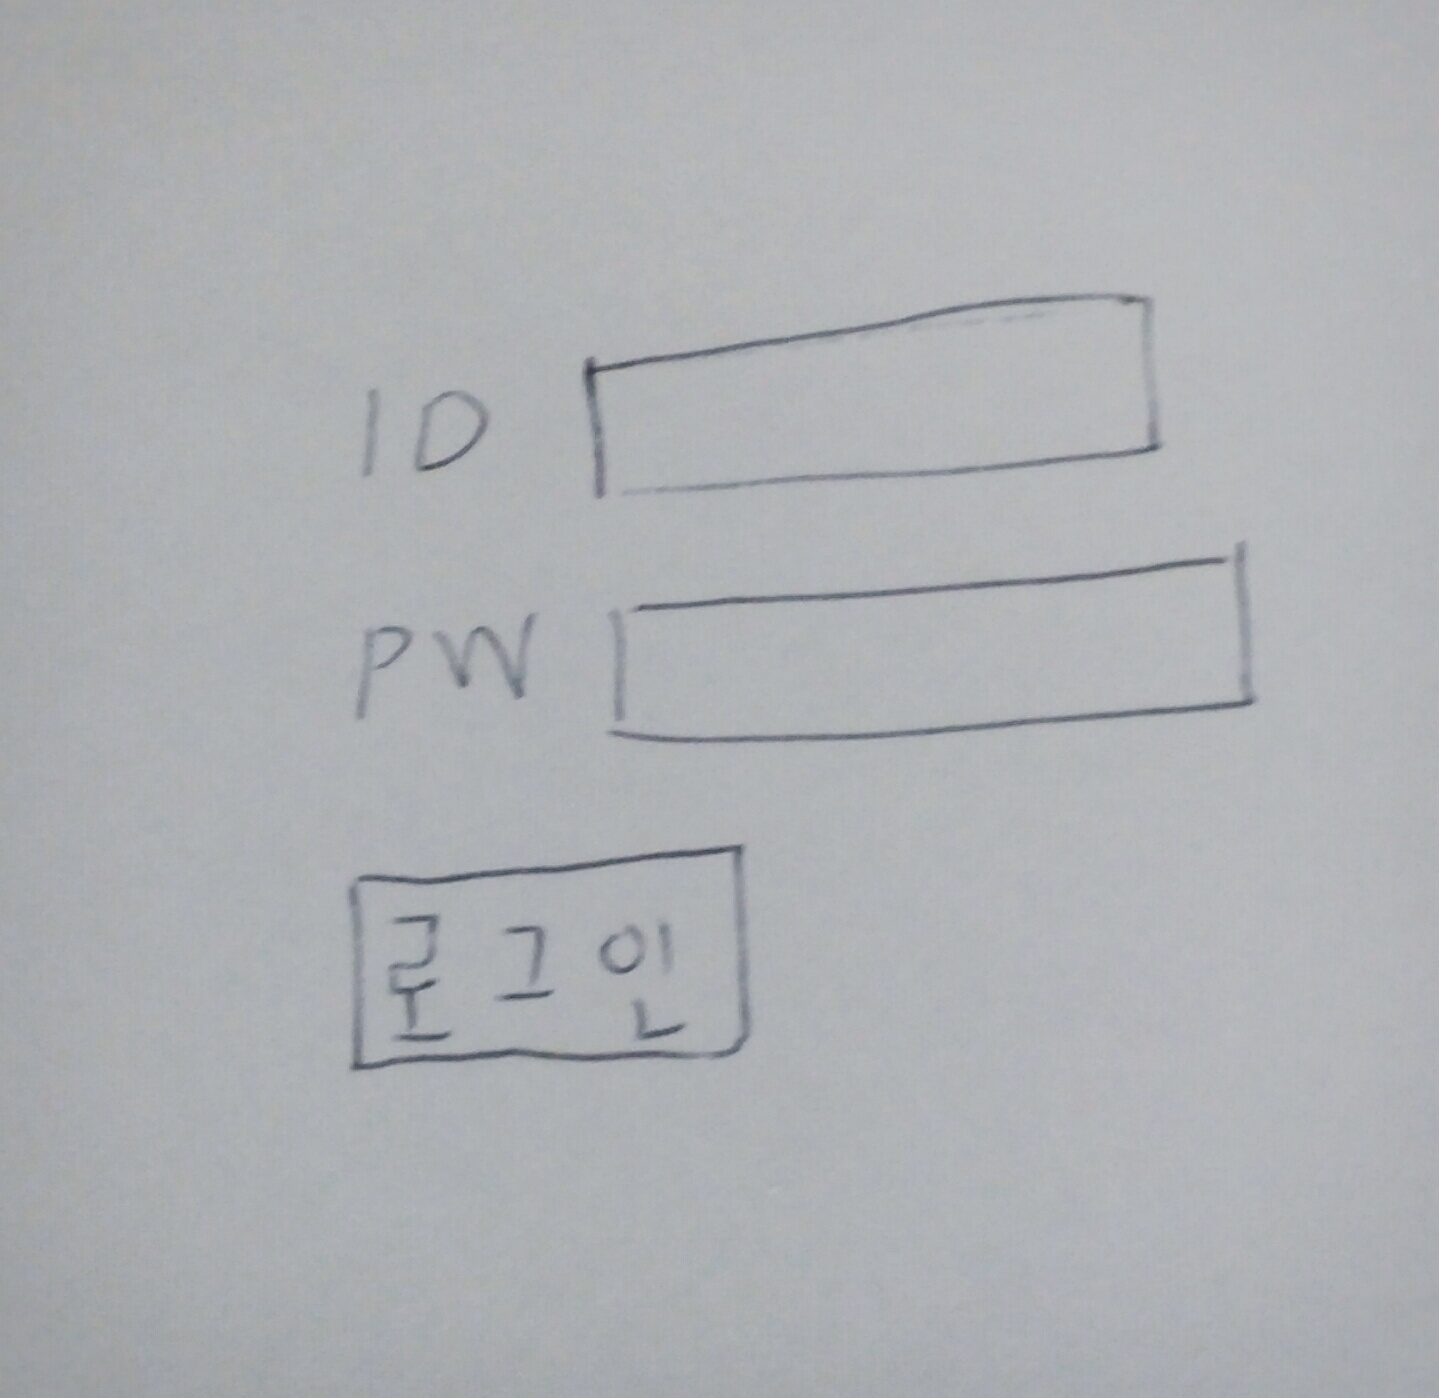 ID
PW
로그인